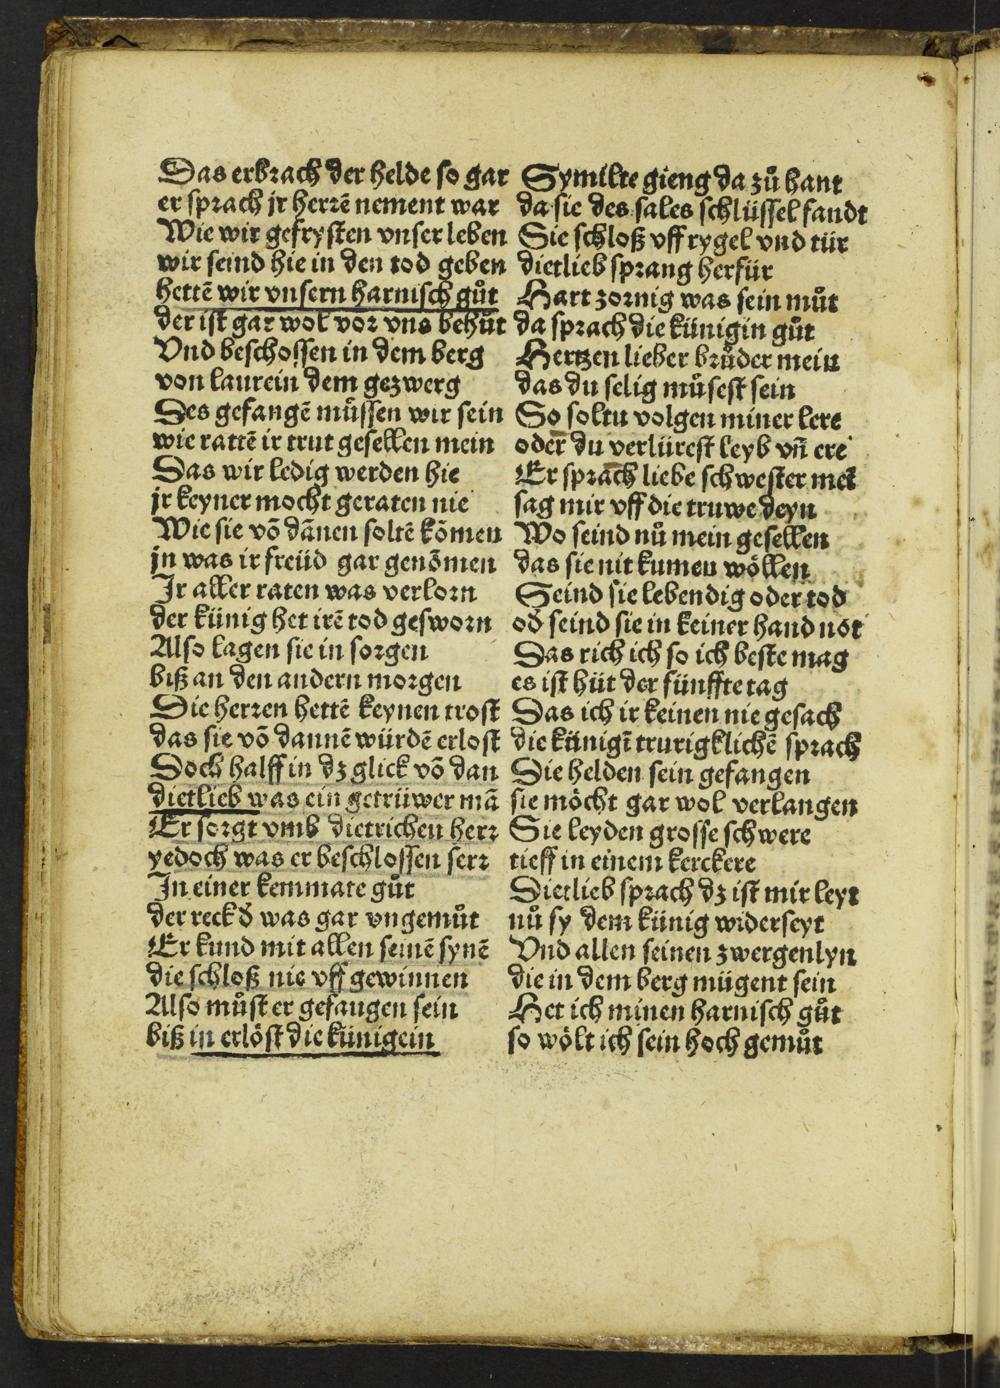 Das erbrach der helde so gar
er sprach jr herrē nement war
Wie wir gefrysten vnser leben
wir seind hie in den tod geben
hettē wir vnsern harnisch gůt
der ist gar wol vor vns behůt
Vnd beschossen in dem berg
von laurein dem gezwerg
Des gefangē můssen wir sein
wie rattē ir trut gesellen mein
Das wir ledig werden hie
jr keyner mocht geraten nie
Wie sie vō dānen soltē kōmen
jn was ir freüd gar genōmen
Ir aller raten was verlorn
der künig het irē tod gesworn
Also lagen sie in sorgen
biß an den andern morgen
Die herren hettē keynen trost
das sie vō dannē würdē erlost
Doch halff in dz glick vō dan
dietlieb was ein getrüwer mā
Er sorgt vmb dietrichen herr
yedoch was er beschlossen serr
In einer kemmate gůt
der reck d̄ was gar vngemůt
Er kund mit allen seinē synē
die schloß nie vff gewinnen
Also můst er gefangen sein
biß in erlöst die künigein
Symilte gieng da zů hant
da sie des sales schlüssel fandt
Sie schloß vff rygel vnd tür
dietlieb sprang herfür
Hart zornig was sein můt
da sprach die künigin gůt
Hertzen lieber brůder mein
das du selig můsest sein
So soltu volgen miner lere
oder du verlürest leyb vn̄ ere
Er sprach liebe schwester meī
sag mir vff die truwe deyn
Wo seind nů mein gesellen
das sie nit kumen wöllen
Seind sie lebendig oder tod
od̄ seind sie in keiner hand not
Das rich ich so ich beste mag
es ist hüt der fünffte tag
Das ich ir keinen nie gesach
die künigī trurigklichē sprach
Die helden sein gefangen
sie möcht gar wol verlangen
Sie leyden grosse schwere
tieff in einem kerckere
Dietlieb sprach dz ist mir leyt
nů sy dem künig widerseyt
Vnd allen seinen zwergenlyn
die in dem berg mügent sein
Het ich minen harnisch gůt
so wölt ich sein hoch gemůt